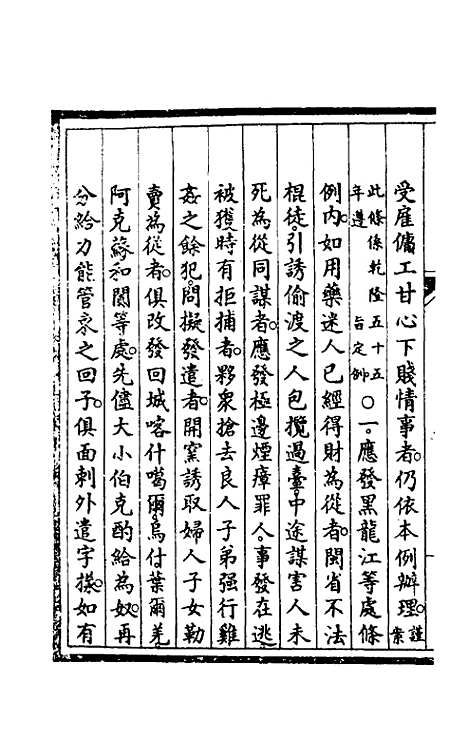 受雇傭工甘心下賤情事者仍依本例辦理謹案
此條係乾隆五十五年遵旨定例○一應發黑龍江等處條
例內如用藥迷人已經得財為從者閩省不法
棍徒引誘偷渡之人包攬過臺中途謀害人未
死為從同謀者應發極邊煙瘴罪人事發在逃
被獲時有拒捕者夥眾搶去良人子弟强行雞
姦之餘犯問擬發遣者開窯誘取婦人子女勒
賣為從者俱改發回城喀什噶爾烏什葉爾羌
阿克蘇和闐等處先儘大小伯克酌給為奴再
分給力能管束之回子俱面刺外遣字樣如有